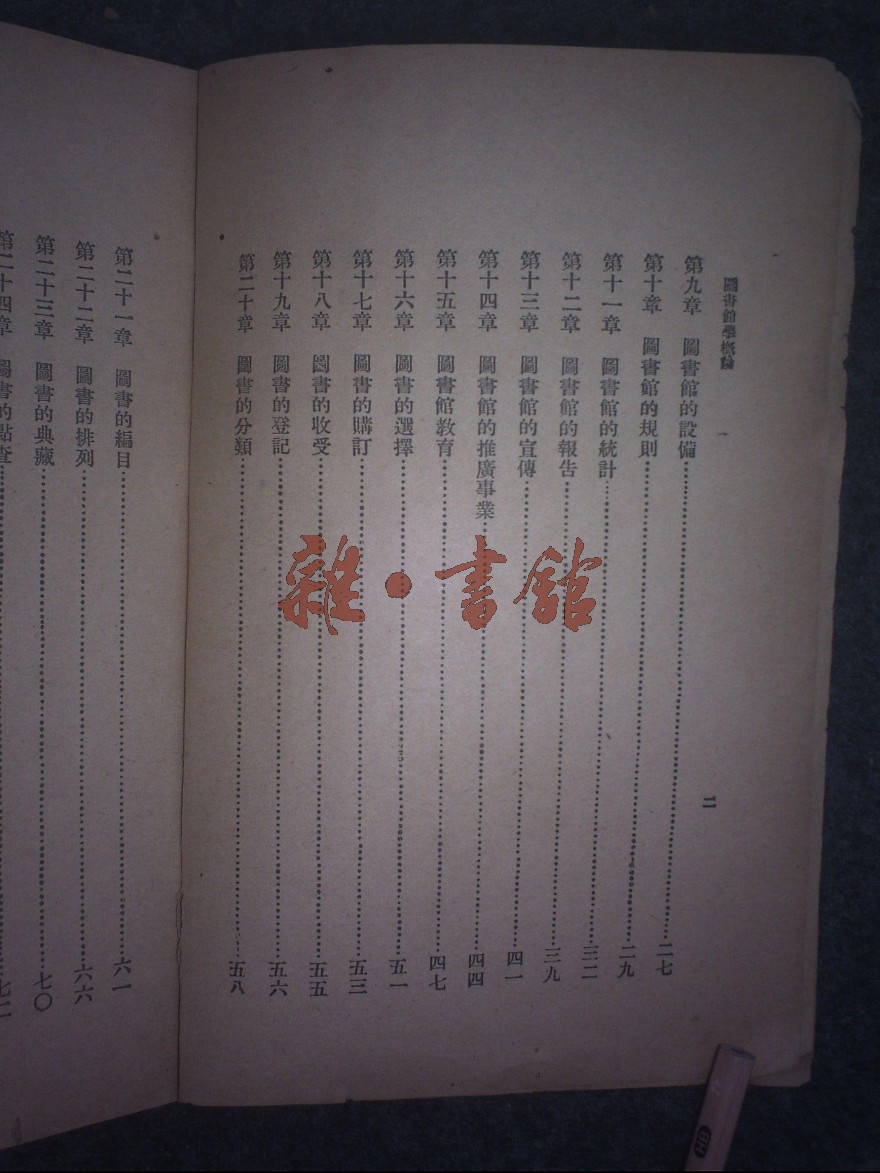 圖書館學概論
二
第九章 圖書館的設備……二七
第十章 圖書館的規則……二九
第十一章 圖書館的統計……三二
第十二章 圖書館的報告……三九
第十三章 圖書館的宣傳……四一
第十四章 圖書館的推廣事業……四四
第十五章 圖書館教育……四七
第十六章 圖書的選擇……五一
第十七章 圖書的購訂……五三
第十八章 圖書的收受……五五
第十九章 圖書的登記……五六
第二十章 圖書的分類……五八
第二十一章 圖書的編目……六一
第二十二章 圖書的排列……六六
第二十三章 圖書的典藏……七〇
第二十四章 圖書的點查……七二
雜·書館
HB